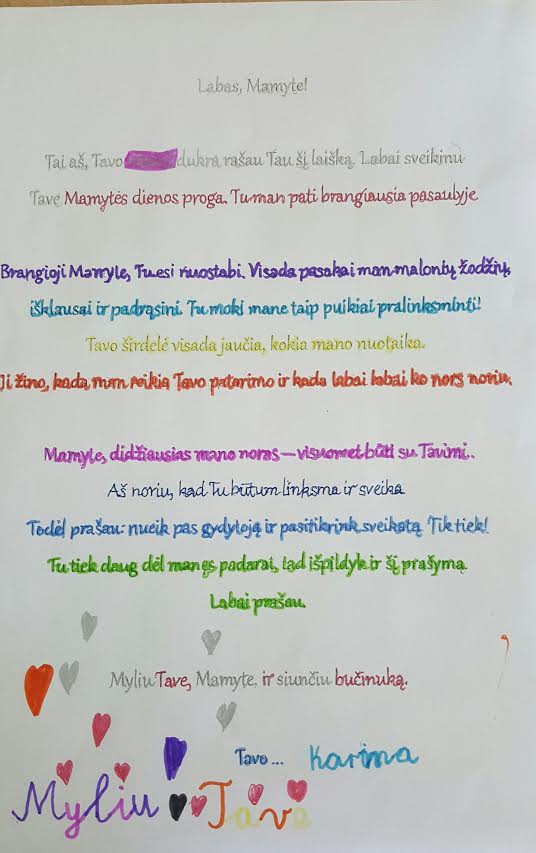 Labas, Mamyte!
Tai aš, Tavo dukra rašau Tau šį laišką. Labai sveikinu
Tave Mamytės dienos proga. Tu man pati brangiausia pasaulyje
Brangioji Mamyte, Tu esi nuostabi. Visada pasakai man malonių žodžių,
išklausai ir padrąsini. Tu moki mane taip puikiai pralinksminti!
Tavo širdelė visada jaučia, kokia mano nuotaika.
Ji žino, kada man reikia Tavo patarimo ir kada labai labai ko nors noriu.
Mamyte, didžiausias mano noras – visuomet būti su Tavimi.
Aš noriu, kad Tu būtum linksma ir sveika
Todėl prašau: nueik pas gydytoją ir pasitikrink sveikatą. Tik tiek!
Tu tiek daug dėl manęs padarai, tad išpildyk ir šį prašymą.
Labai prašau.
Myliu Tave, Mamyte, ir siunčiu bučinuką.
Tavo ... Karina
Myliu Tave